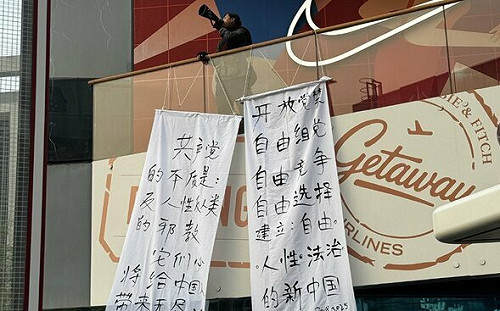 共产党
的本质是：
反人性反人类
的邪教
它们必
将给中国
带来无尽
开放党禁
自由组党
自由竞争
自由选择
建立:自由。
"人性"法治
的新中国
IE & FITCH
Getaway
RLINES